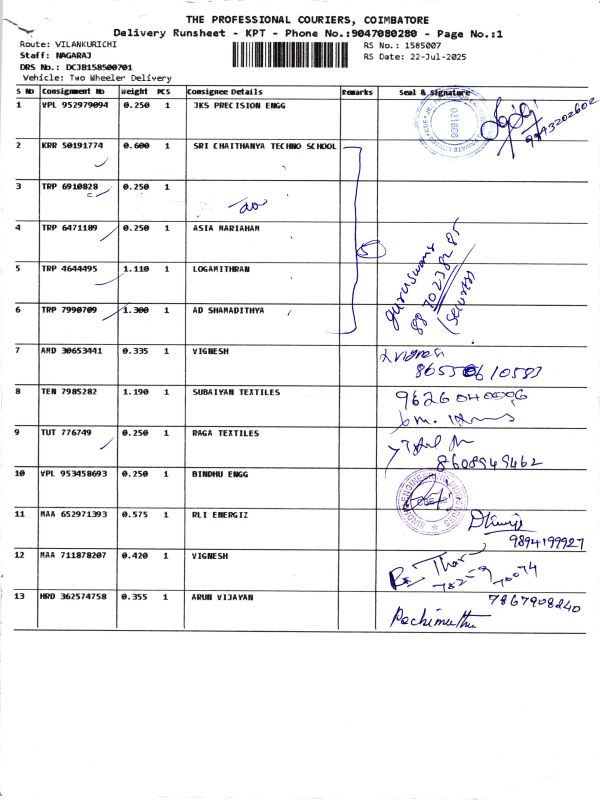 THE PROFESSIONAL COURIERS, COIMBATORE
Delivery Runsheet - KPT - Phone No.:9047080280 - Page No.:1
Route: VILANKURICHI RS No.: 1585007
Staff: NAGARAJ RS Date: 22-Jul-2025
DRS No.: DCJB158500701
Vehicle: Two Wheeler Delivery
S No Consignment No Weight PCS Consignee Details Remarks Seal & Signature
1 VPL 952979094 0.250 1 JKS PRECISION ENGG
031806
9843202602
2 KRR 50191774 0.600 1 SRI CHAITHANYA TECHNO SCHOOL
3 TRP 6910828 0.250 1
4 TRP 6471189 0.250 1 ASIA MARIAHAM
5 TRP 4644495 1.110 1 LOGAMITHRAN
5
guruswamy
8870238285
(security)
6 TRP 7990709 1.300 1 AD SHAMADITHYA
7 AMD 30653441 0.335 1 VIGNESH
8 TEN 7985282 1.190 1 SUBAIYAN TEXTILES
9 TUT 776749 0.250 1 RAGA TEXTILES
8608949462
10 VPL 953458693 0.250 1 BINDHU ENGG
11 MAA 652971393 0.575 1 RLI ENERGIZ
9894199927
12 MAA 711878207 0.420 1 VIGNESH
13 HRD 362574758 0.355 1 ARUN VIJAYAN
7867908240
Pachimuthu